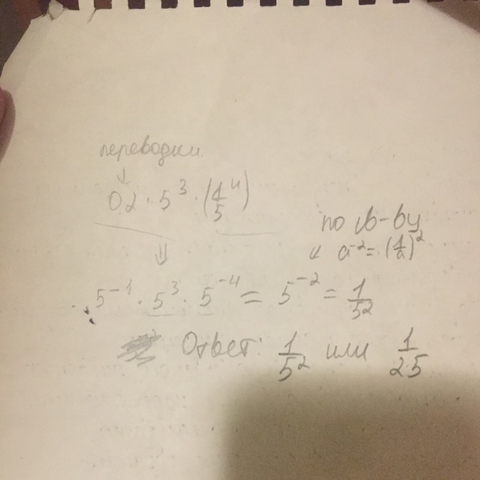 переводим
↓
0.2 · 5³ · (1/5⁴)
по св-ву
↓ a⁻² = (1/a)²
⇓
5⁻¹ · 5³ · 5⁻⁴ = 5⁻² = 1/5²
Ответ: 1/5² или 1/25